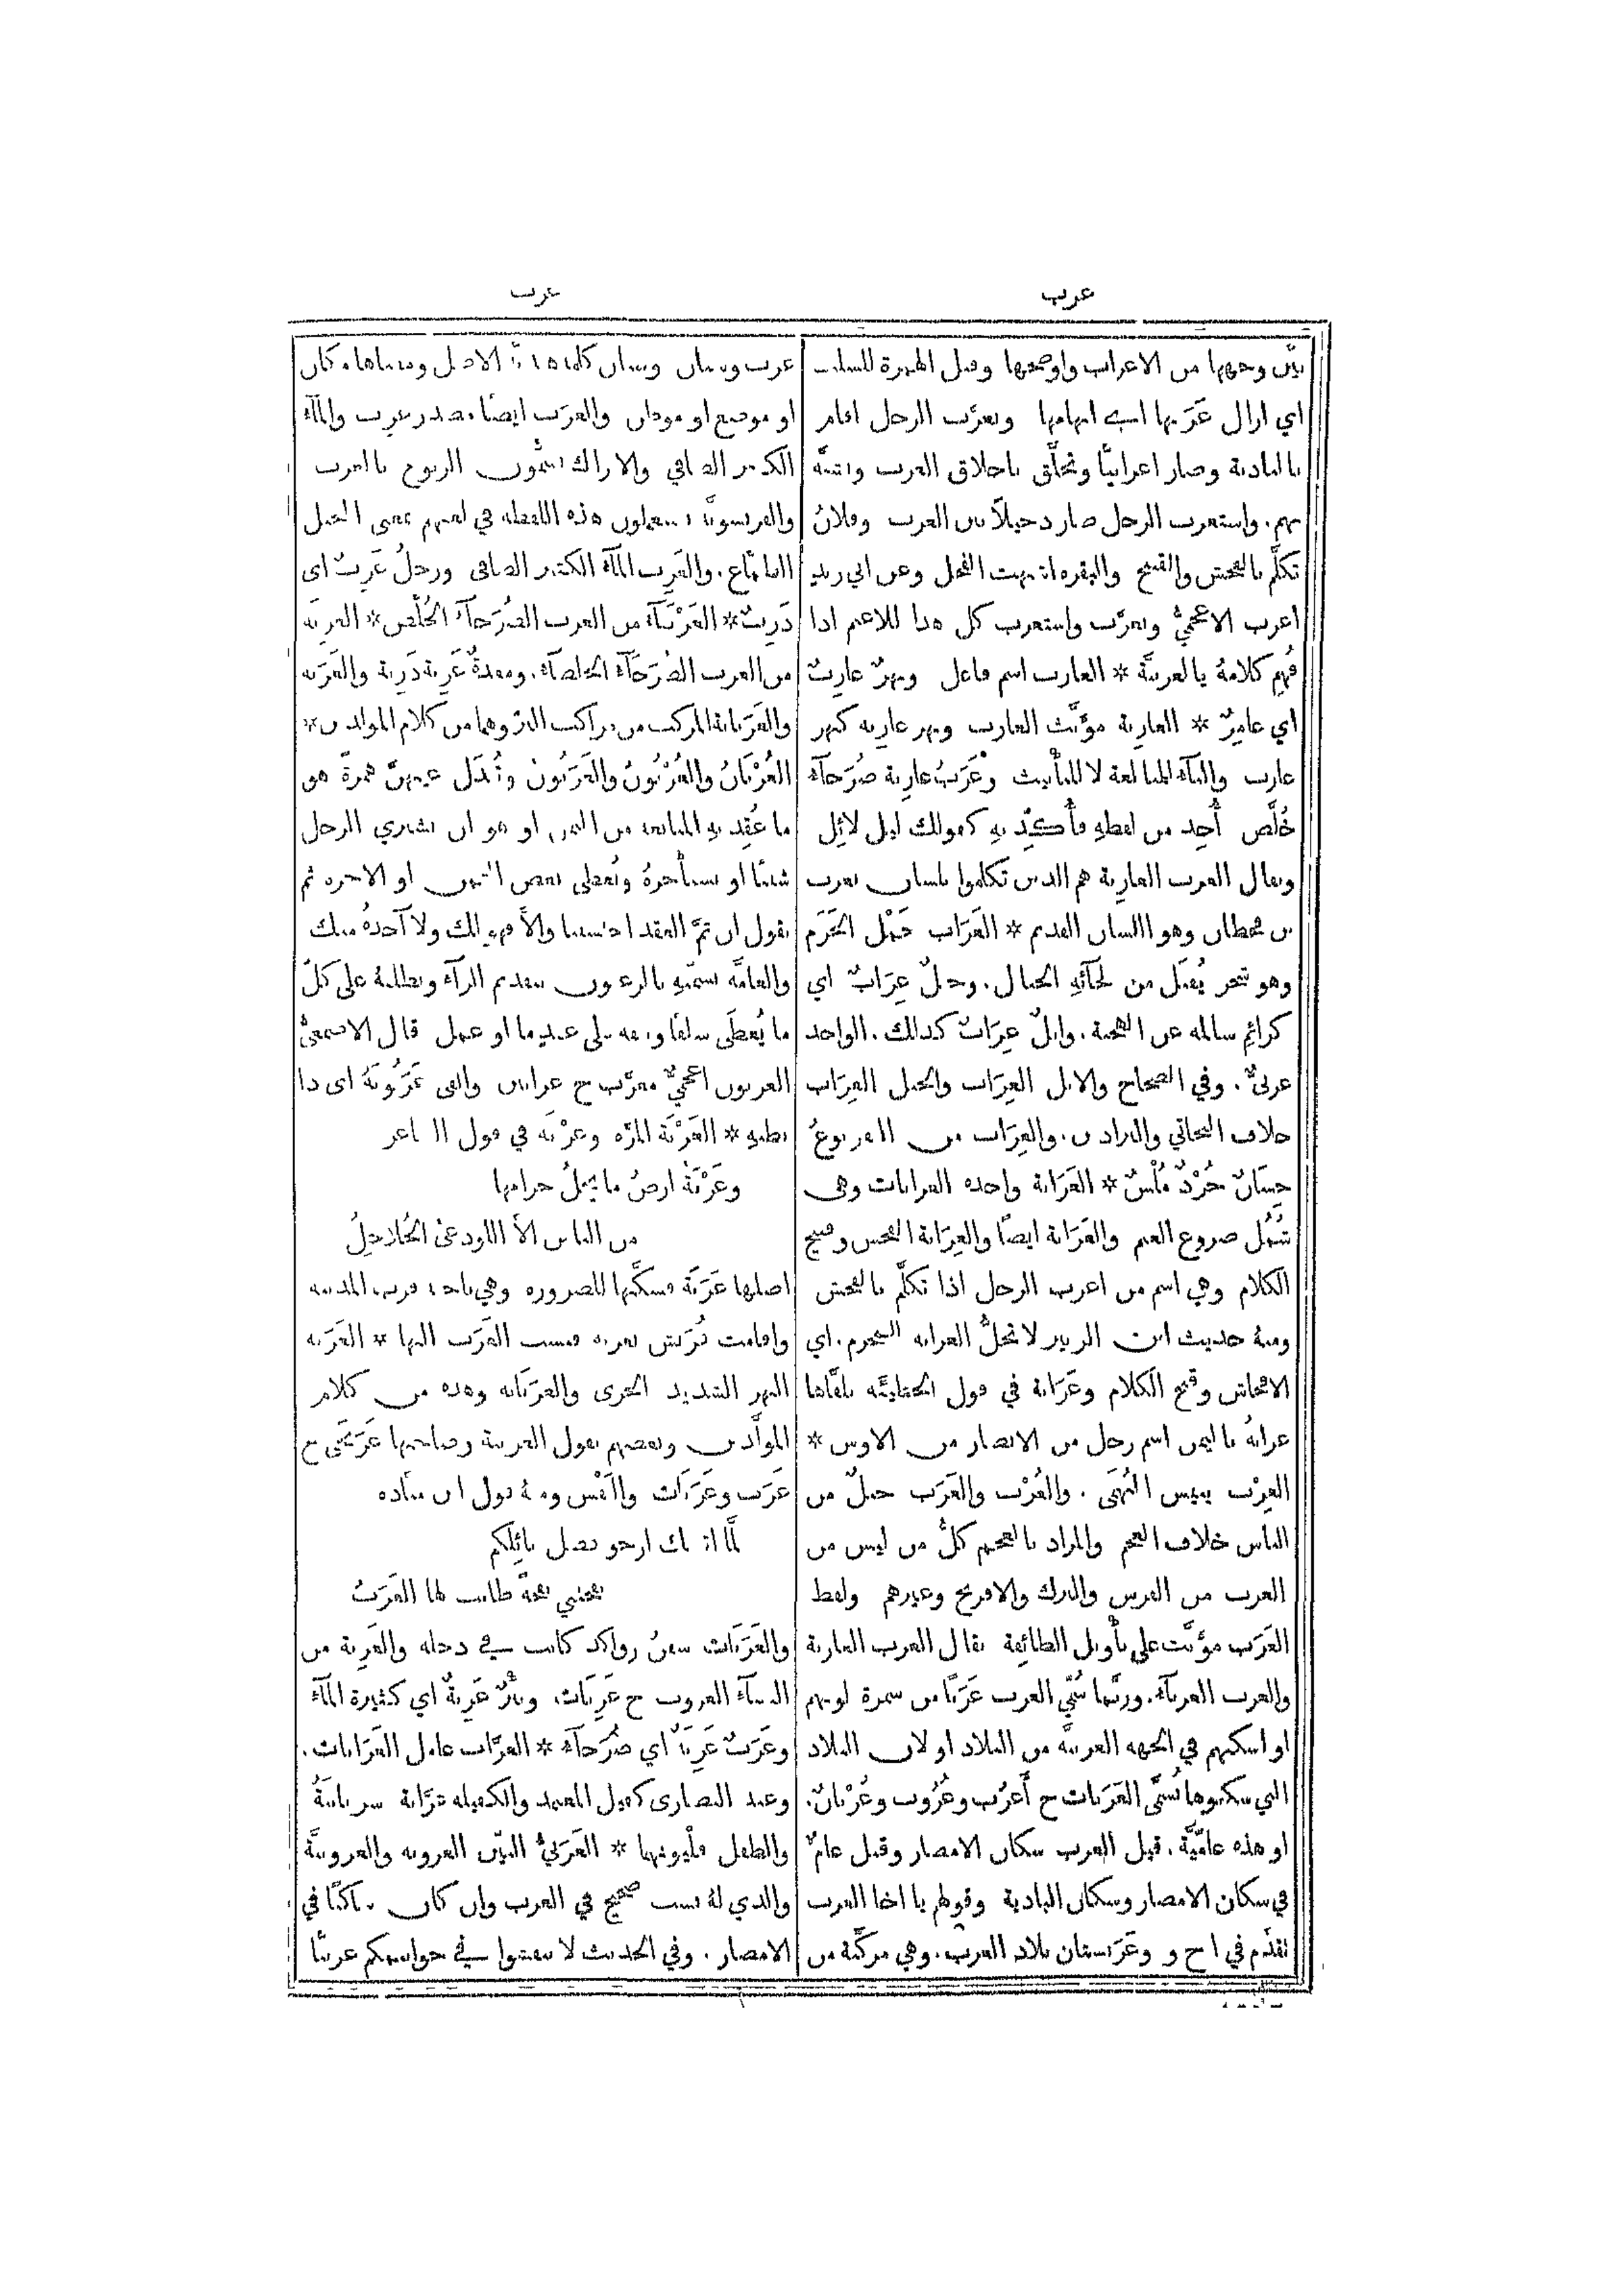 عرب
بيَّن وجهها من الاعراب واوضحها وقيل الهمزة للسلب
اي ازال عَرَبها اي ابهامها وتعرَّب الرجل اقام
بالبادية وصار اعرابيًّا وتخلَّق باخلاق العرب وتشبَّه
بهم. واستعرب الرجل صار دخيلًا بين العرب وفلانٌ
تكلَّم بالفحش والقبيح والبقرة اشتهت الفحل وعن ابي زيد
اعرب الاعجميُّ وتعرَّب واستعرب كل هذا للاعجم اذا
فُهِم كلامهُ بالعربيَّة * العارب اسم فاعل ونهرٌ عاربٌ
اي غامرٌ * العاربة مؤنَّث العارب ونهر عاربة كنهر
عارب والتآء للمبالغة لا للتأنيث وعَرَبٌ عاربة صُرَحآء
خُلَّص أُخِذ من لفظهِ فأُكِّد بهِ كقولك ليل لائِل
ويقال العرب العاربة هم الذين تكلموا بلسان يعرب
بن قحطان وهو اللسان القديم * العَرَاب حَمْل الخَزَم
وهو شجر يُفتَل من لحآئهِ الحبال. وخيلٌ عِرَابٌ اي
كرائِم سالمة عن الهجنة. وابلٌ عِرَابٌ كذلك. الواحد
عربيٌّ. وفي الصحاح والابل العِرَاب والخيل العِرَاب
خلاف البخاتي والبراذين. والعِرَاب من
حِسَانٌ جُرْدٌ مُلْسٌ * العَرَابة واحدة العرابات وهي
شُمُل ضروع الغنم والعَرَابة ايضًا والعِرَابة الفحش وقبيح
الكلام وهي اسم من اعرب الرجل اذا تكلَّم بالفحش
ومنهُ حديث ابن الزبير لا تحلُّ العرابة للمحرم. اي
الافحاش وقبح الكلام وعَرَابة في قول تلقَّاها
عرابةُ باليمين اسم رجل من الانصار من الاوس *
العِرْب يبيس البُهْمَى. والعُرْب والعَرَب جيلٌ من
الناس خلاف العجم والمراد بالعجم كلُّ من ليس من
العرب من الفرس والترك والافرنج وغيرهم ولفظ
العَرَب مؤنَّث على تأويل الطائفة يقال العرب العاربة
والعرب العربآء. وربَّما سُمِّي العرب عَرَبًا من سمرة لونهم
او اسكنهم في الجهة الغربيَّة من البلاد او لان البلاد
التي سكنوها تُسمَّى العَرَبات ج أَعرُب وعُرُوب وعُرْبانٌ.
او هذه عامّيَّة. قيل العرب سكان الامصار وقيل عامٌ
في سكان الامصار وسكان البادية وقولهم يا اخا العرب
تقدَّم في ا خ و وعَرَبستان بلاد العرب. وهي مركَّبة من
عرب
عرب وستان وستان كلمة الاصل ومعناها مكان
او موضع او موذان والعرَب ايضًا مصدر عرِب والمآء
الكثير الصافي والاتراك يسمُّون الربوع بالعرب
والفرنسويُّون يستعملون هذه اللفظة في لغتهم بمعنى البخيل
الطمَّاع. والعَرِب المآء الكثير الصافي ورجلٌ عَرِبٌ اي
ذَرِبٌ * العَرْبآء من العرب الصُرَحآء الخُلَّص * العربة
من العرب الصُرَحَآء الخلصآء. ومعدةٌ عَرِبة ذَرِبة والعَرَبة
والعَرَبانة المركب من مراكب البرّ وهما من كلام المولدين *
العُرْبَانُ والعُرْبُونُ والعَرَبُون وتُبدَل عينهنَّ همزة هو
ما عُقِد بهِ المبايعة من الثمن او هو ان يشتري الرجل
شيئًا او يستأجرهُ ويُعطي بعض الثمن او الاجرة ثم
يقول ان تمَّ العقد احتسبنا والَّا فهو لك ولا آخذهُ منك
والعامَّة تسمّيهِ بالرعبون بتقديم الرآء وتطلقهُ على كلّ
ما يُعطَى سلفًا وعدة على عهد ما او عمل قال الاصمعيُّ
العربون اعجميٌّ معرَّب ج عرابين والقى عَرَبُونَهُ اي ذا
بطنهِ * العَرْبَة المرَّة وعرْبَة في قول الشاعر
وعَرْبَةُ ارضٌ ما يُحِلُّ حرامها
من الناس الَّا اللوذعيُّ الحُلاحِلُ
اصلها عَرَبَة فسكَّنها للضرورة وهي ناحية قرب المدينة
واقامت قُرَيش بعربة فنسب العَرَب اليها * العَرَبة
النهر الشديد الجري والعرَبَانة وهذه من كلام
المولَّدين وبعضهم يقول العربية وصاحبها عَرَبَجي ج
عَرَب وعَرَبَات والنَفْس ومنهُ قول ابن ميَّادة
لمَّا اتيتك ارجو فضل نائِلكم
نفحتني نفحةً طابت لها العَرَبُ
والعَرَبَات سفنٌ رواكد كانت في دجلة والعَرِبة من
النسآء العروب ج عَرِبَات. وبئرٌ عَرِبةٌ اي كثيرة المآء
وعَرَبٌ عَرِبَةٌ اي صُرَحآء * العرَّاب عامل العَرَابات.
وعند النصارى كفيل المعمد والكفيلة عرَّابة سريانيَّةُ
والطفل فليونهما * العَرَبيُّ البيّن العروبة والعروبيَّة
والذي لهُ نسب صحيح في العرب وان كان ساكنًا في
الامصار. وفي الحديث لا تنقشوا في خواتيمكم عربيًّا